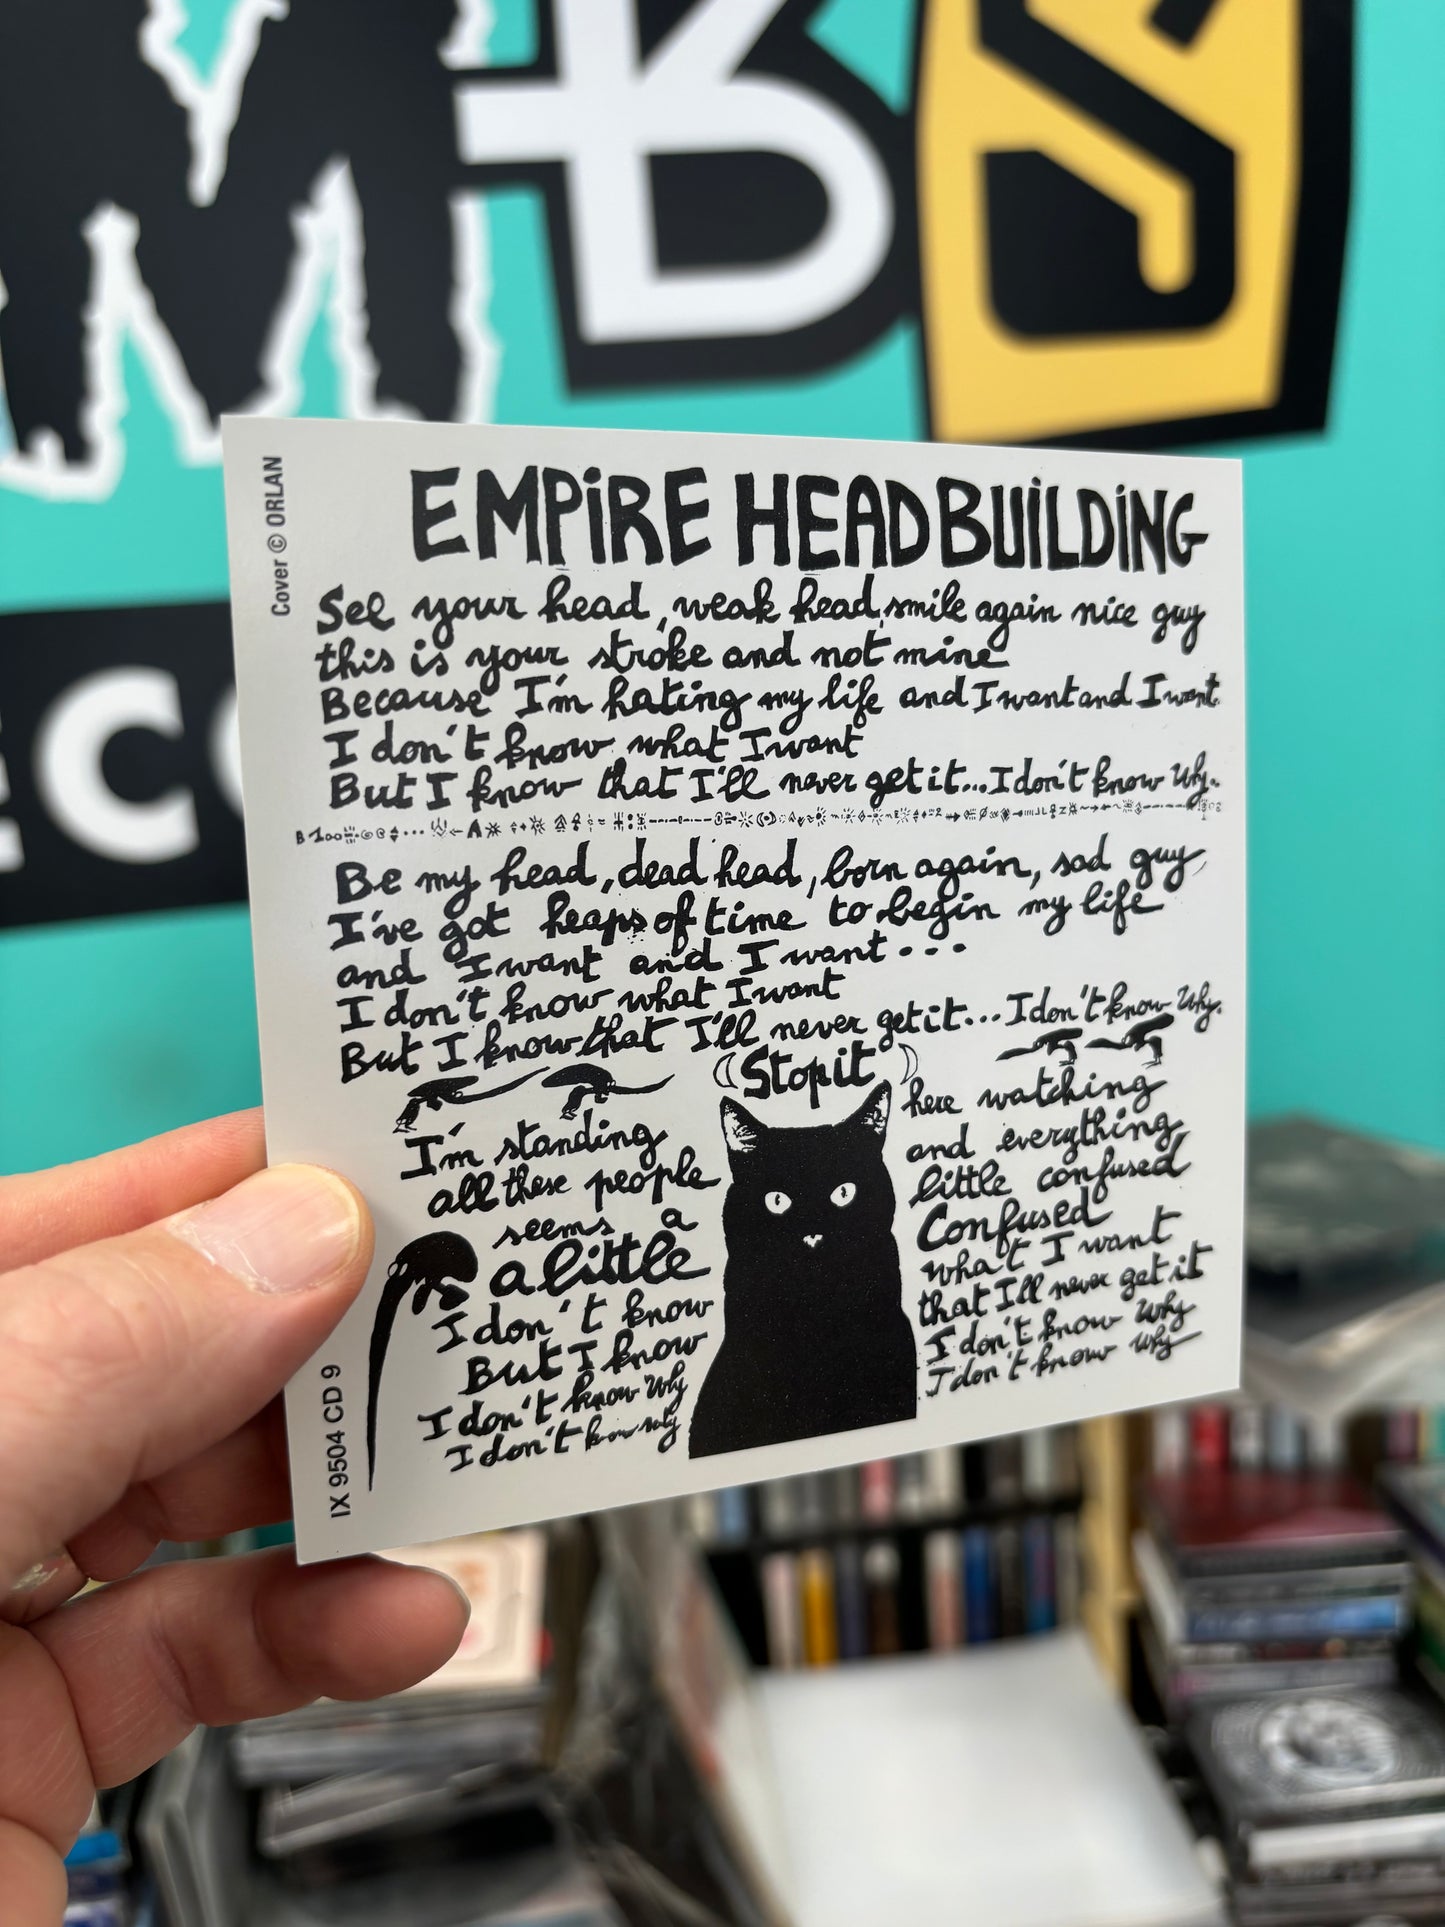 MBS
ECO
Cover © ORLAN
EMPiRE HEADBUiLDiNG
See your head, weak head, smile again nice guy
this is your stroke and not mine
Because I'm hating my life and I want and I want
I don't know what I want
But I know that I'll never get it... I don't know Why.
Be my head, dead head, born again, sad guy,
I've got heaps of time to begin my life
and I want and I want...
I don't know what I want
But I know that I'll never get it... I don't know Why.
Stop it
I'm standing
all these people
seems a
a little
I don't know
But I know
I don't know Why
I don't know why
here watching
and everything
little confused
Confused
what I want
that I'll never get it
I don't know Why
I don't know why
IX 9504 CD 9